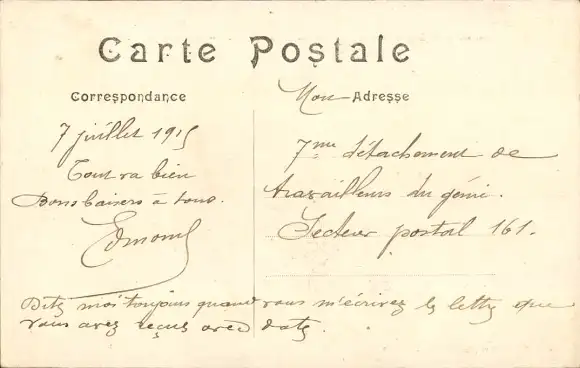 Carte Postale
Correspondance
Mon Adresse
7 juillet 1915
Tout va bien
Bons baisers à tous.
Edmond
7me détachement de
travailleurs du génie.
Secteur postal 161.
Dites moi toujours quand vous m'écrivez les lettres que
vous avez reçues avec dates.